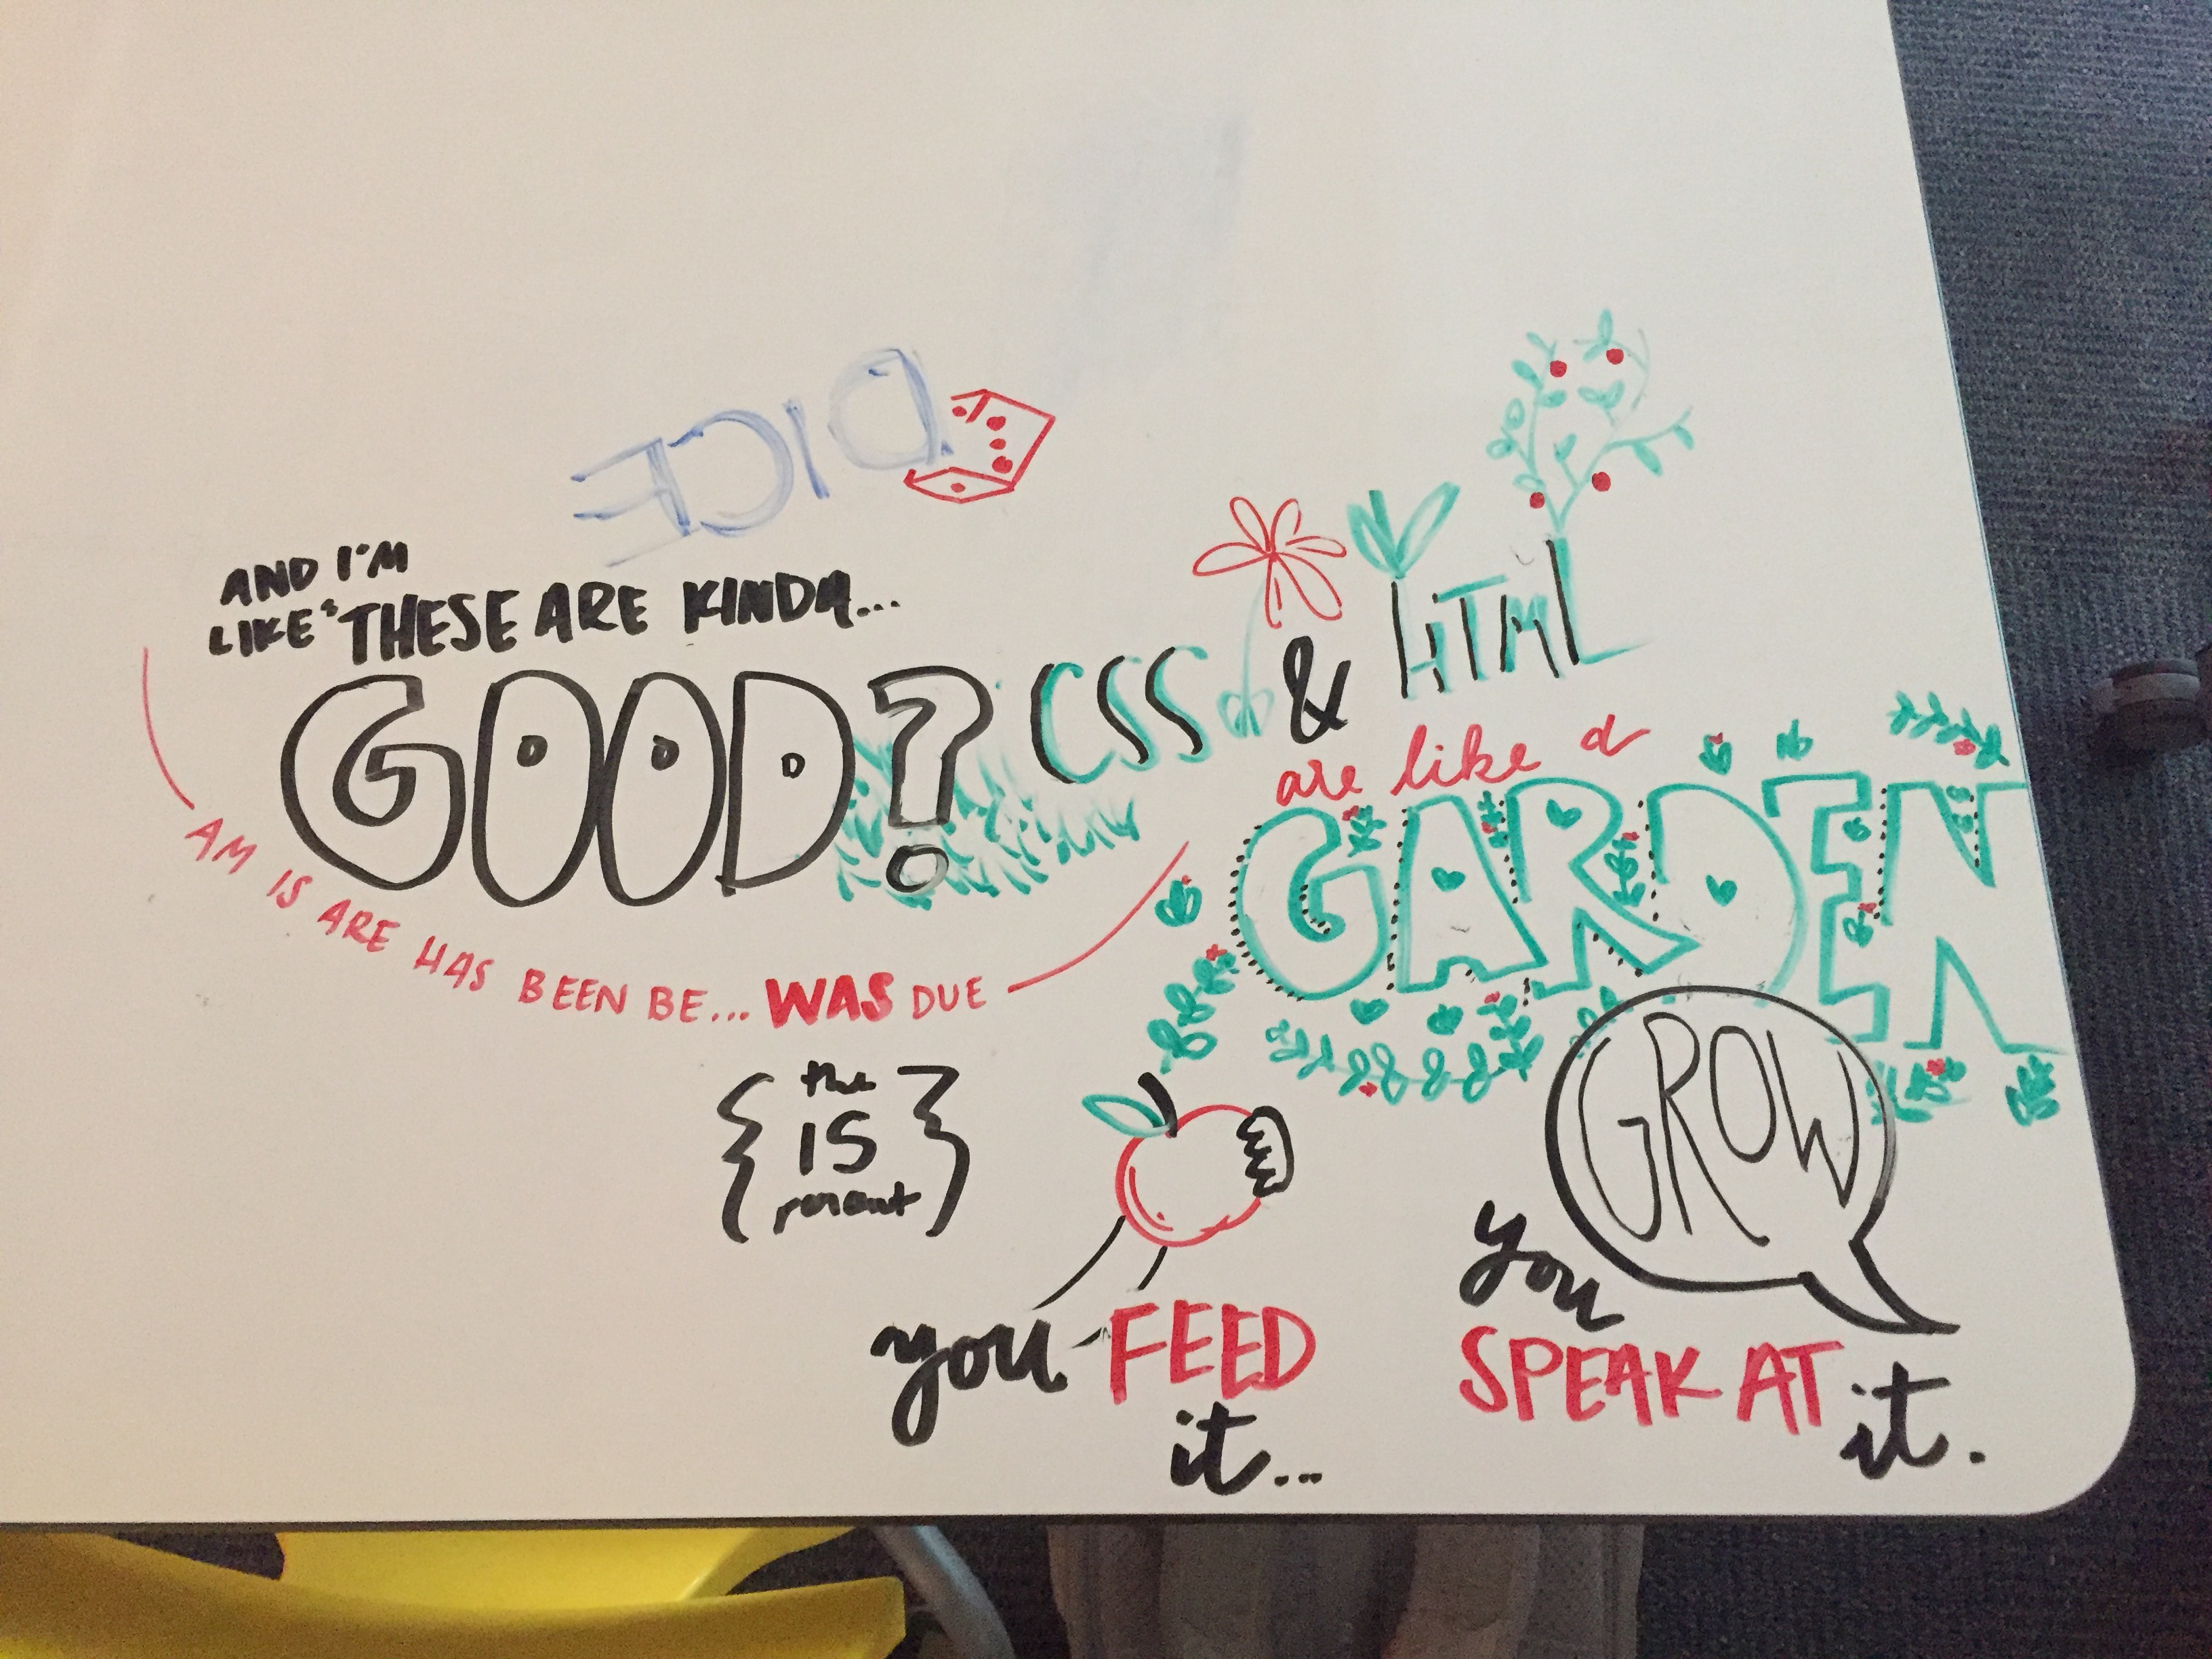 DICE
AND I'M
LIKE "THESE ARE KINDA...
GOOD?
AM IS ARE HAS BEEN BE... WAS DUE
{the
IS
parent}
CSS & HTML
are like a
GARDEN
you FEED
it...
GROW
you
SPEAK AT
it.